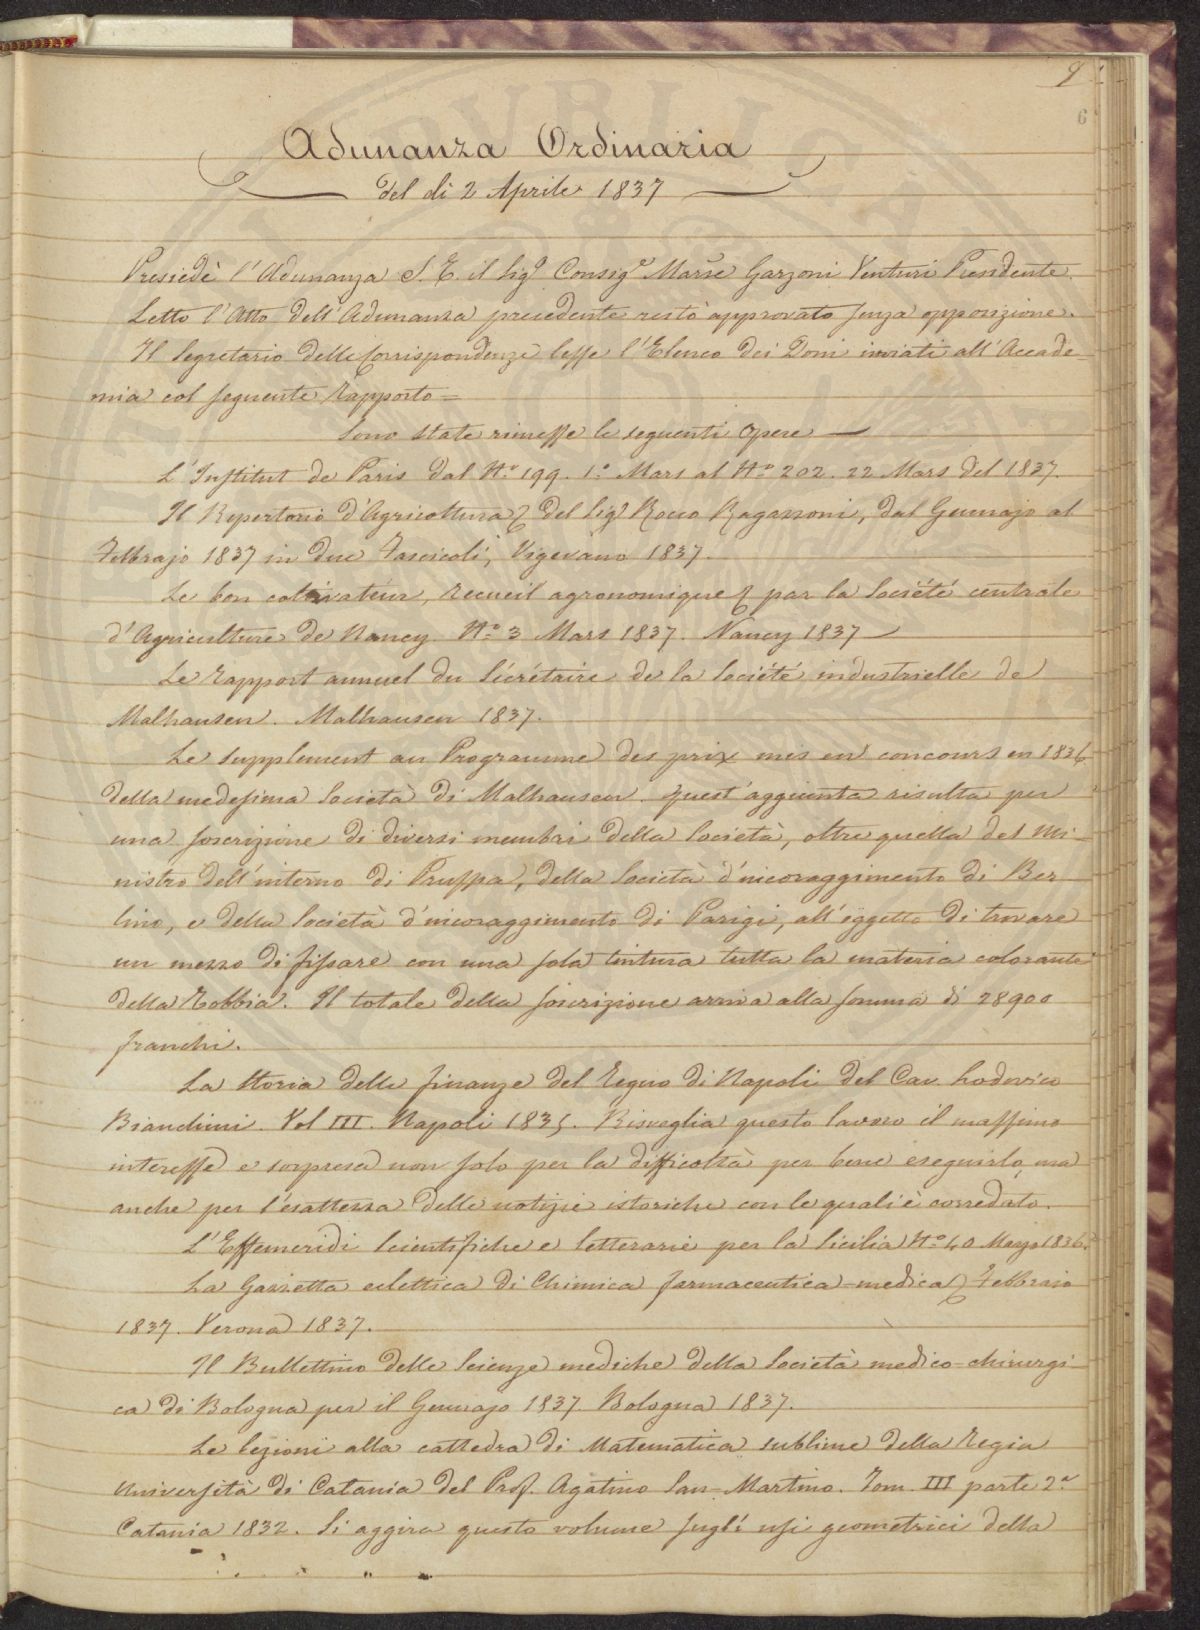 9
6
Adunanza Ordinaria
del dì 2 Aprile 1837
Presiedè l'Adunanza S. E. il Sigr. Consigre Marse Garzoni Venturi Presidente.
Letto l'Atto dell'Adunanza precedente restò approvato senza opposizione.
Il Segretario delle Corrispondenze lesse l'Elenco dei Doni inviati all'Accade-
mia col seguente Rapporto =
Sono state rimesse le seguenti Opere —
L'Institut de Paris dal No. 199. 1.o Mars al No. 202. 22 Mars del 1837.
Il Repertorio d'Agricoltura del Sigr Rocco Ragazzoni, dal Gennajo al
Febbrajo 1837 in due Fascicoli, Vigevano 1837.
Le bon coltivatéur, recueil agronomique par la Société centrale
d'Agriculture de Nancy. No. 3 Mars 1837. Nancy 1837 —
Le rapport annuel du Sécrétaire de la Société industrielle de
Malhausen. Malhausen 1837.
Le supplement au Programme des prix mis en concours en 1836
della medesima Società di Malhausen. Quest'aggiunta risulta per
una soscrizione di diversi membri della Società, oltre quella del Mi-
nistro dell'interno di Prussia, della Società d'incoraggimento di Ber
lino, e della Società d'incoraggimento di Parigi, all'oggetto di trovare
un mezzo di fissare con una sola tintura tutta la materia colorante
della Robbia. Il totale della soscrizione arriva alla somma di 28900
franchi.
La Storia delle finanze del Regno di Napoli del Cav. Lodovico
Bianchini. Vol III. Napoli 1835. Risveglia questo lavoro il massimo
interesse e sorpresa non solo per la difficoltà per bene eseguirlo, ma
anche per l'esattezza delle notizie istoriche con le quali è corredato.
L'Effemeridi scientifiche e letterarie per la Sicilia No. 40 Mayo 1836.
La Gazzetta eclettica di Chimica farmaceutica-medica Febbraio
1837. Verona 1837.
Il Bullettino delle Scienze mediche della Società medico-chirurgi
ca di Bologna per il Gennajo 1837. Bologna 1837.
Le lezioni alla cattedra di Matematica sublime della Regia
Università di Catania del Prof. Agatino San-Martino. Tom. III parte 2.a
Catania 1832. Si aggira questo volume sugl'i usi geometrici della